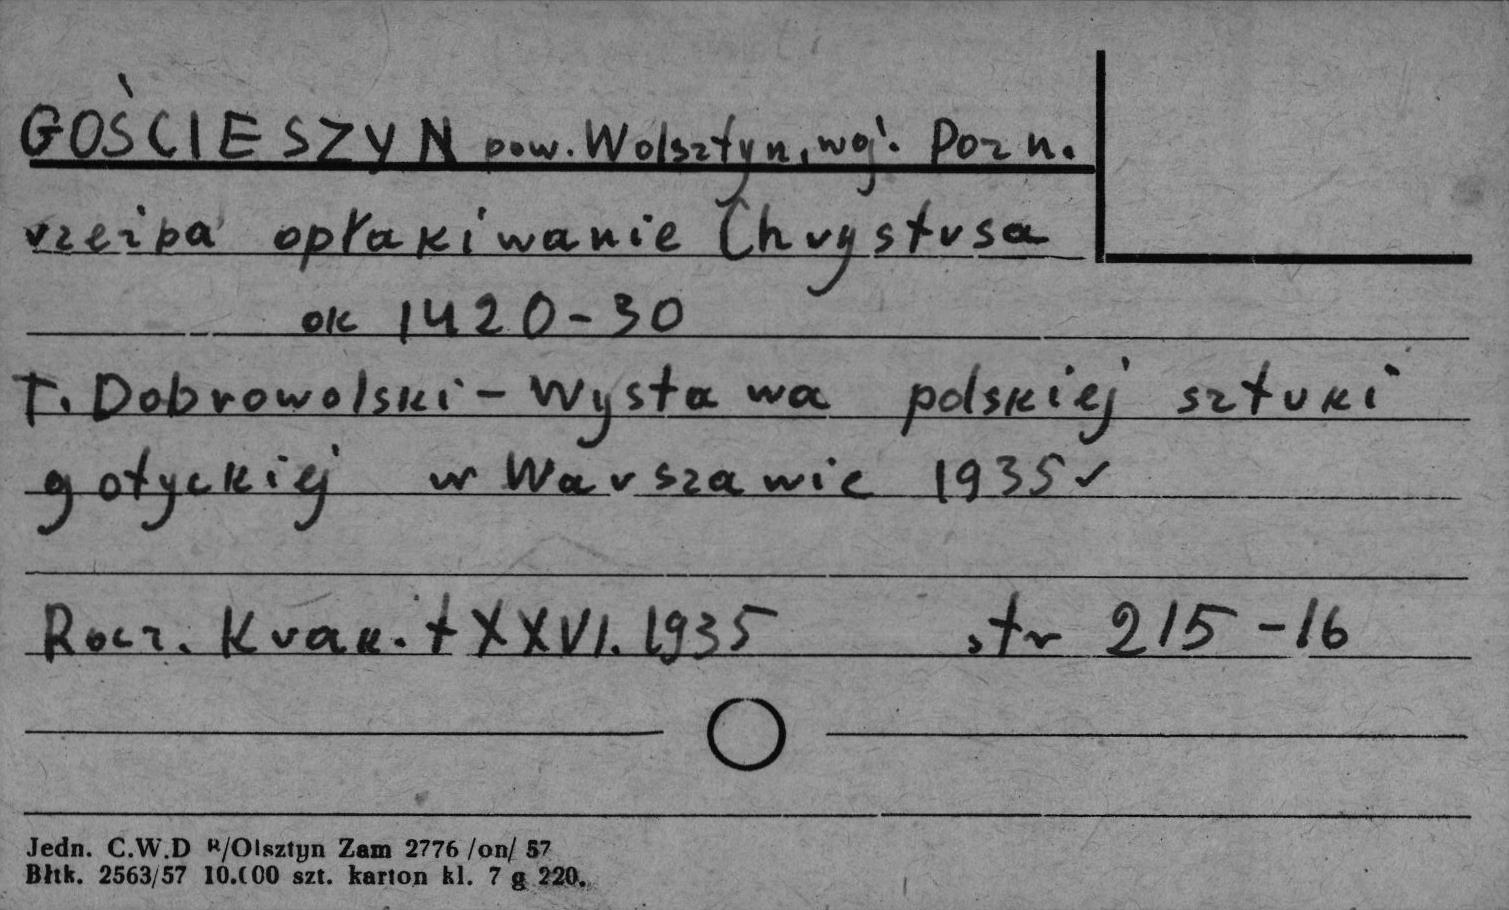 GOŚCIESZYN pow. Wolsztyn, woj. Pozn.
rzeźba opłakiwanie Chrystusa
ok 1420-30
T. Dobrowolski - Wystawa polskiej sztuki
gotyckiej w Warszawie 1935 ✓
Rocz. Krak. t XXVI. 1935 str 215-16
Jedn. C.W.D R/Olsztyn Zam 2776 /on/ 57
Błtk. 2563/57 10.000 szt. karton kl. 7 g 220.